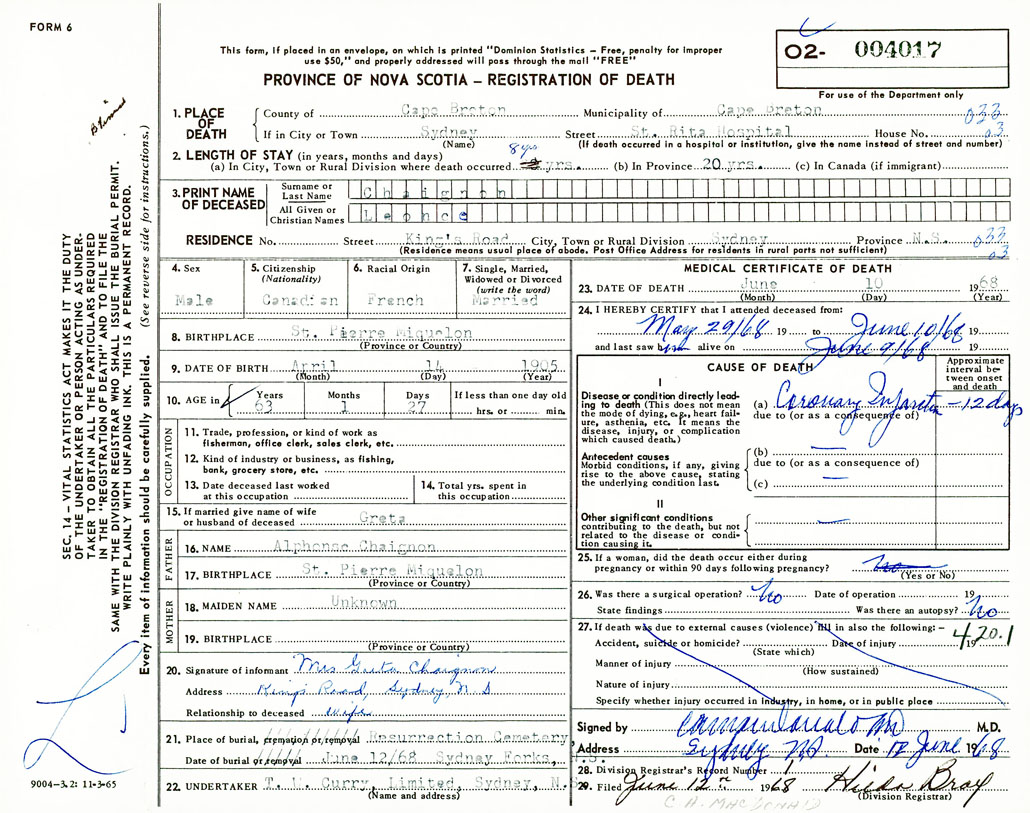 FORM 6
This form, if placed in an envelope, on which is printed "Dominion Statistics – Free, penalty for improper
use $50," and properly addressed will pass through the mail "FREE"
PROVINCE OF NOVA SCOTIA – REGISTRATION OF DEATH
O2- 004017
For use of the Department only
1. PLACE OF DEATH
County of Cape Breton Municipality of Cape Breton 033
If in City or Town Sydney Street St. Rita Hospital House No. 03
(Name) (If death occurred in a hospital or institution, give the name instead of street and number)
2. LENGTH OF STAY (in years, months and days) 8 yrs
(a) In City, Town or Rural Division where death occurred yrs. (b) In Province 20 yrs. (c) In Canada (if immigrant)
3. PRINT NAME OF DECEASED
Surname or Last Name Chaignon
All Given or Christian Names Leonce
RESIDENCE No. Street King's Road City, Town or Rural Division Sydney Province N.S. 033
(Residence means usual place of abode. Post Office Address for residents in rural parts not sufficient) 03
4. Sex Male
5. Citizenship (Nationality) Canadian
6. Racial Origin French
7. Single, Married, Widowed or Divorced (write the word) Married
8. BIRTHPLACE St. Pierre Miquelon
(Province or Country)
9. DATE OF BIRTH April 14 1905
(Month) (Day) (Year)
10. AGE in Years 63 Months 1 Days 27 If less than one day old hrs. or min.
OCCUPATION
11. Trade, profession, or kind of work as
fisherman, office clerk, sales clerk, etc.
12. Kind of industry or business, as fishing,
bank, grocery store, etc.
13. Date deceased last worked
at this occupation
14. Total yrs. spent in
this occupation
15. If married give name of wife
or husband of deceased Greta
FATHER
16. NAME Alphonse Chaignon
17. BIRTHPLACE St. Pierre Miquelon
(Province or Country)
MOTHER
18. MAIDEN NAME Unknown
19. BIRTHPLACE
(Province or Country)
20. Signature of informant Mrs Greta Chaignon
Address Kings Road, Sydney, N.S
Relationship to deceased wife
21. Place of burial, cremation or removal Resurrection Cemetery,
Date of burial or removal June 12/68 Sydney Forks, N.S.
22. UNDERTAKER T. W. Curry, Limited, Sydney, N.S.
(Name and address)
MEDICAL CERTIFICATE OF DEATH
23. DATE OF DEATH June 10 1968
(Month) (Day) (Year)
24. I HEREBY CERTIFY that I attended deceased from:
May 29/68 19 to June 10/68 19
and last saw him alive on June 9/68 19
CAUSE OF DEATH
Approximate interval between onset and death
I
Disease or condition directly leading to death (This does not mean the mode of dying, e.g., heart failure, asthenia, etc. It means the disease, injury, or complication which caused death.)
(a) Coronary Infarction – 12 days
due to (or as a consequence of)
Antecedent causes
Morbid conditions, if any, giving rise to the above cause, stating the underlying condition last.
(b)
due to (or as a consequence of)
(c)
II
Other significant conditions
contributing to the death, but not related to the disease or condition causing it.
25. If a woman, did the death occur either during
pregnancy or within 90 days following pregnancy? no
(Yes or No)
26. Was there a surgical operation? No Date of operation 19
State findings Was there an autopsy? No
27. If death was due to external causes (violence) fill in also the following:–
Accident, suicide or homicide? Date of injury 19 420.1
(State which)
Manner of injury
(How sustained)
Nature of injury
Specify whether injury occurred in Industry, in home, or in public place
Signed by M.D.
Address Sydney NS Date 12 June 1968
28. Division Registrar's Record Number
29. Filed June 12 1968 Hilda Bray
(Division Registrar)
C. A. MacDONALD
SEC. 14 – VITAL STATISTICS ACT MAKES IT THE DUTY
OF THE UNDERTAKER OR PERSON ACTING AS UNDER-
TAKER TO OBTAIN ALL THE PARTICULARS REQUIRED
IN THE "REGISTRATION OF DEATH" AND TO FILE THE
SAME WITH THE DIVISION REGISTRAR WHO SHALL ISSUE THE BURIAL PERMIT.
WRITE PLAINLY WITH UNFADING INK. THIS IS A PERMANENT RECORD.
Every item of information should be carefully supplied. (See reverse side for instructions.)
9004–3.2: 11-3-65